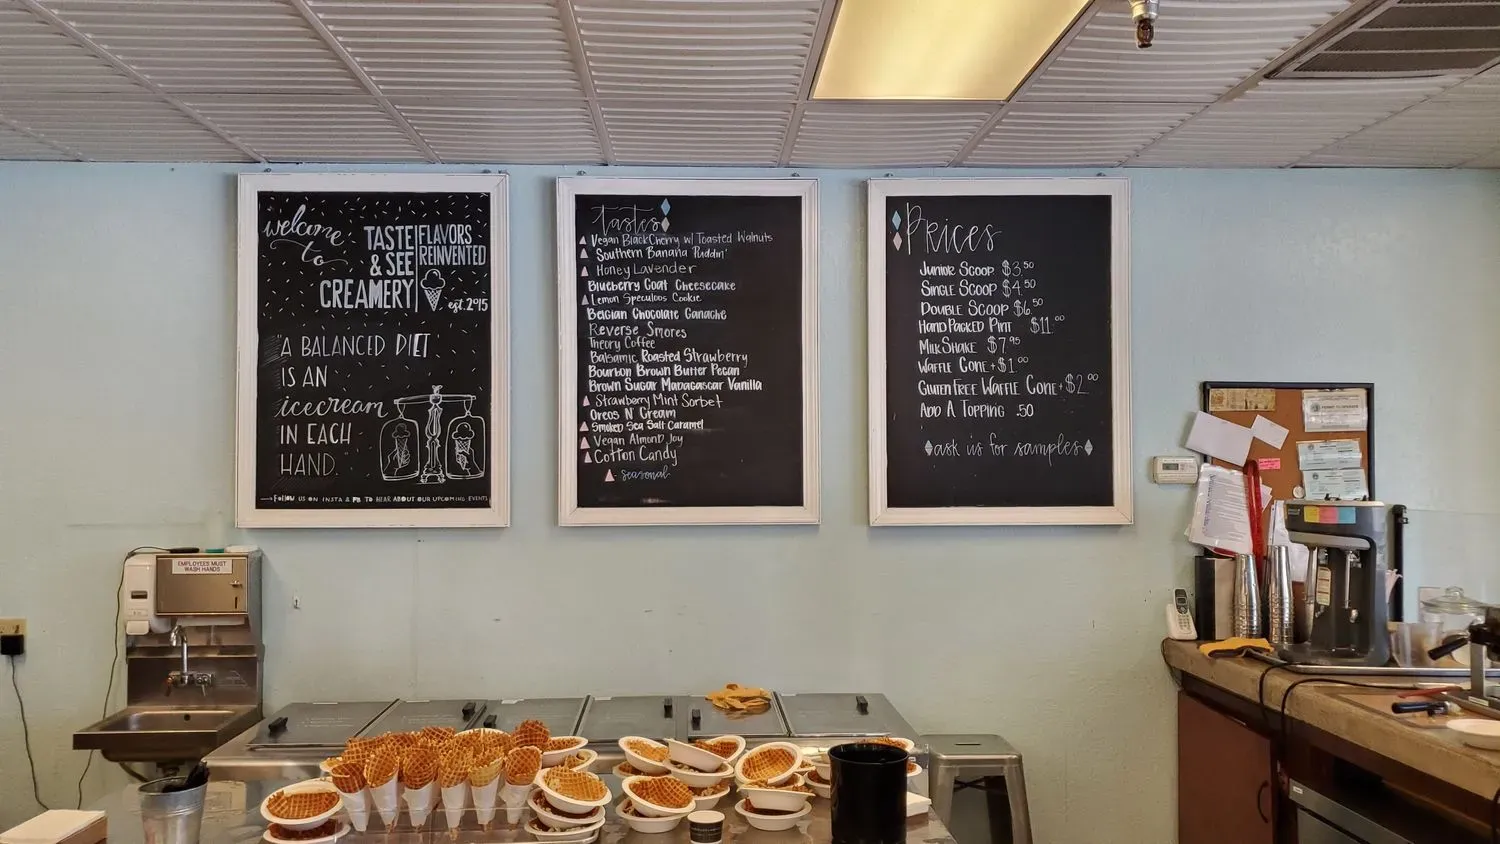 welcome
to
TASTE
& SEE
CREAMERY
FLAVORS
REINVENTED
est. 2015
"A BALANCED DIET
IS AN
icecream
IN EACH
HAND."
FOLLOW US ON INSTA & FB TO HEAR ABOUT OUR UPCOMING EVENTS
tastes
Vegan Black Cherry w/ Toasted Walnuts
Southern Banana Puddin'
Honey Lavender
Blueberry Goat Cheesecake
Lemon Speculoos Cookie
Belgian Chocolate Ganache
Reverse Smores
Theory Coffee
Balsamic Roasted Strawberry
Bourbon Brown Butter Pecan
Brown Sugar Madagascar Vanilla
Strawberry Mint Sorbet
Oreos N' Cream
Smoked Sea Salt Caramel
Vegan Almond Joy
Cotton Candy
- seasonal
Prices
Junior Scoop $3.50
Single Scoop $4.50
Double Scoop $6.50
Hand Packed Pint $11.00
MilkShake $7.95
Waffle Cone +$1.00
Gluten Free Waffle Cone +$2.00
Add A Topping .50
ask us for samples
EMPLOYEES MUST
WASH HANDS